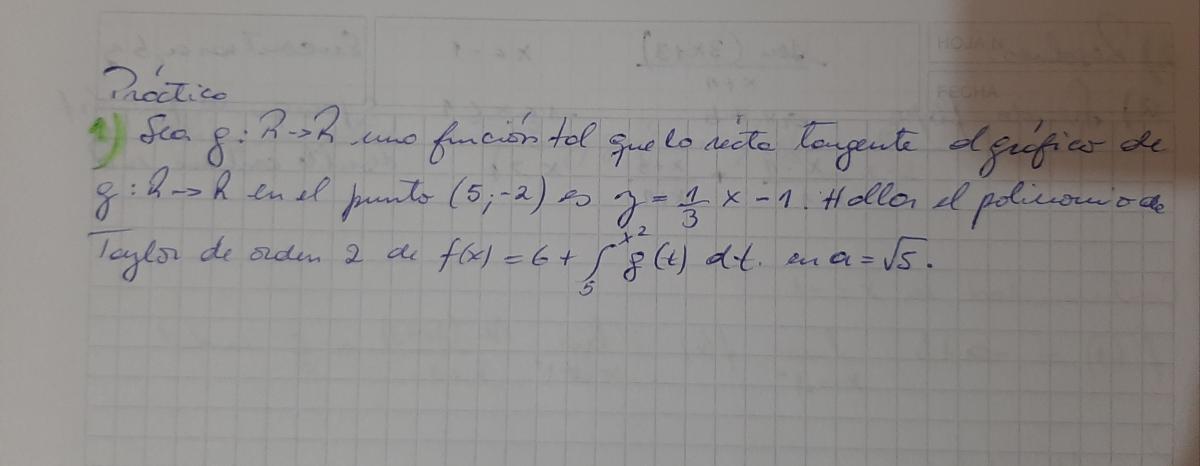 Práctico
1) Sea g: R→R una función tal que la recta tangente al gráfico de
g: R→R en el punto (5;-2) es y = 1/3 x - 1. Hallar el polinomio de
Taylor de orden 2 de f(x) = 6 + ∫₅^{x²} g(t) dt. en a = √5.